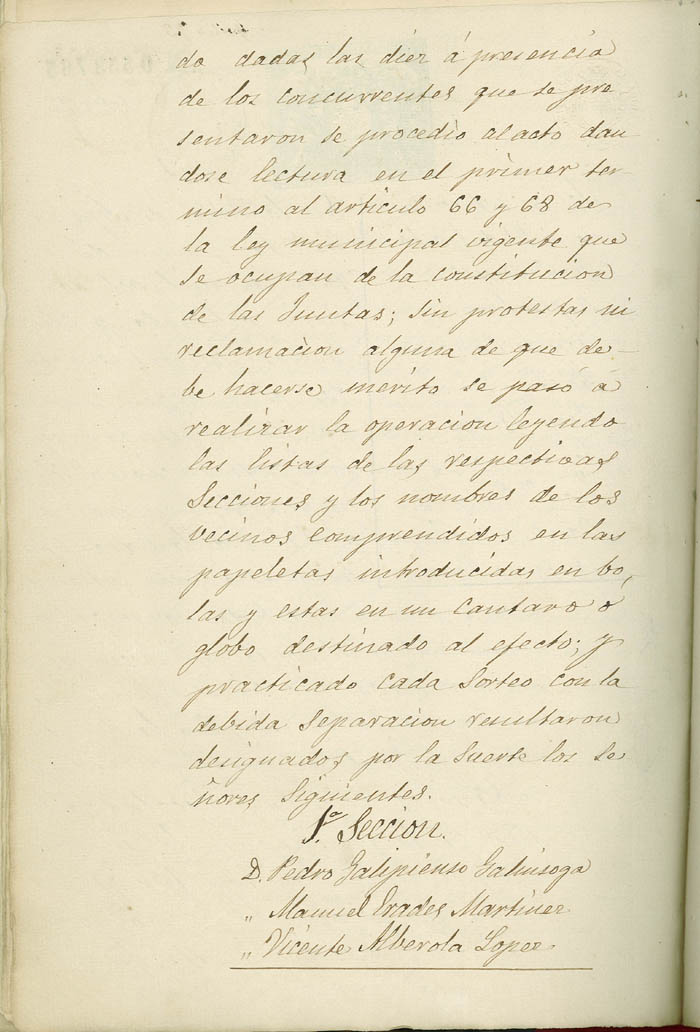 do dadas las diez á presencia
de los concurrentes que se pre-
sentaron se procedió al acto dan
dose lectura en el primer ter-
mino al articulo 66 y 68 de
la ley municipal vigente que
se ocupan de la constitucion
de las Juntas; sin protestas ni
reclamacion alguna de que de-
be hacerse merito se pasó a
realizar la operacion leyendo
las listas de las respectivas
Secciones y los nombres de los
vecinos comprendidos en las
papeletas introducidas en bo,
las y estas en un cantaro ó
globo destinado al efecto; y
practicado cada sorteo con la
debida separacion resultaron
designados por la suerte los Se
ñores siguientes.
1ª Seccion.
D. Pedro Galipienso Galvisoga
„ Manuel Erades Martinez
„ Vicente Alberola Lopez